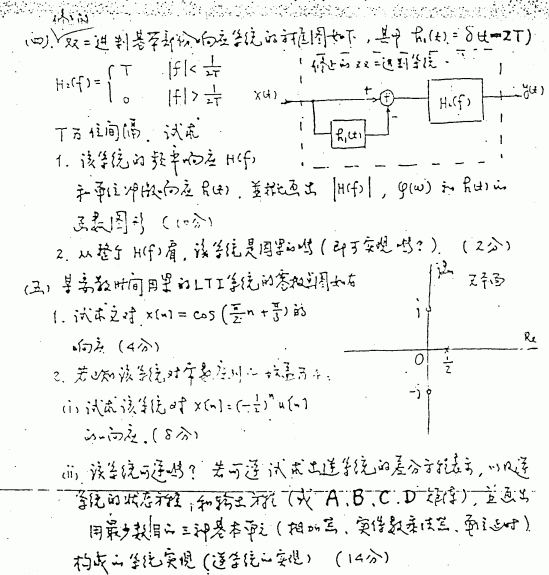 修正的
(四) 双二进制基带部份响应系统的方框图如下，其中 h₁(t)=δ(t-2T)
H₂(f)={ T |f|<1/2T
0 |f|>1/2T
修正的双二进制系统
x(t) + - h₁(t) H₂(f) y(t)
T为位间隔. 试求
1. 该系统的频率响应 H(f)
和单位冲激响应 h(t)，并概画出 |H(f)|，φ(ω) 和 h(t) 的
函数图形 (10分)
2. 从整个 H(f) 看，该系统是因果的吗 (即可实现吗?). (2分)
(五) 某离散时间因果的LTI系统的零极点图如右
1. 试求它对 x[n]=cos(π/2 n+π/3) 的
响应 (4分)
2. 若已知该系统对常数序列
(i) 试求该系统对 x[n]=(-1/2)ⁿu[n]
的响应. (8分)
Im Z平面
j
Re
0 1/2
-j
(ii) 该系统可逆吗? 若可逆试求出逆系统的差分方程表示，以及逆
系统的状态方程和输出方程 (或 A、B、C、D 矩阵)，并画出
用最少数目的三种基本单元 (相加器、实系数乘法器、单位延时)
构成的系统实现 (逆系统的实现) (14分)